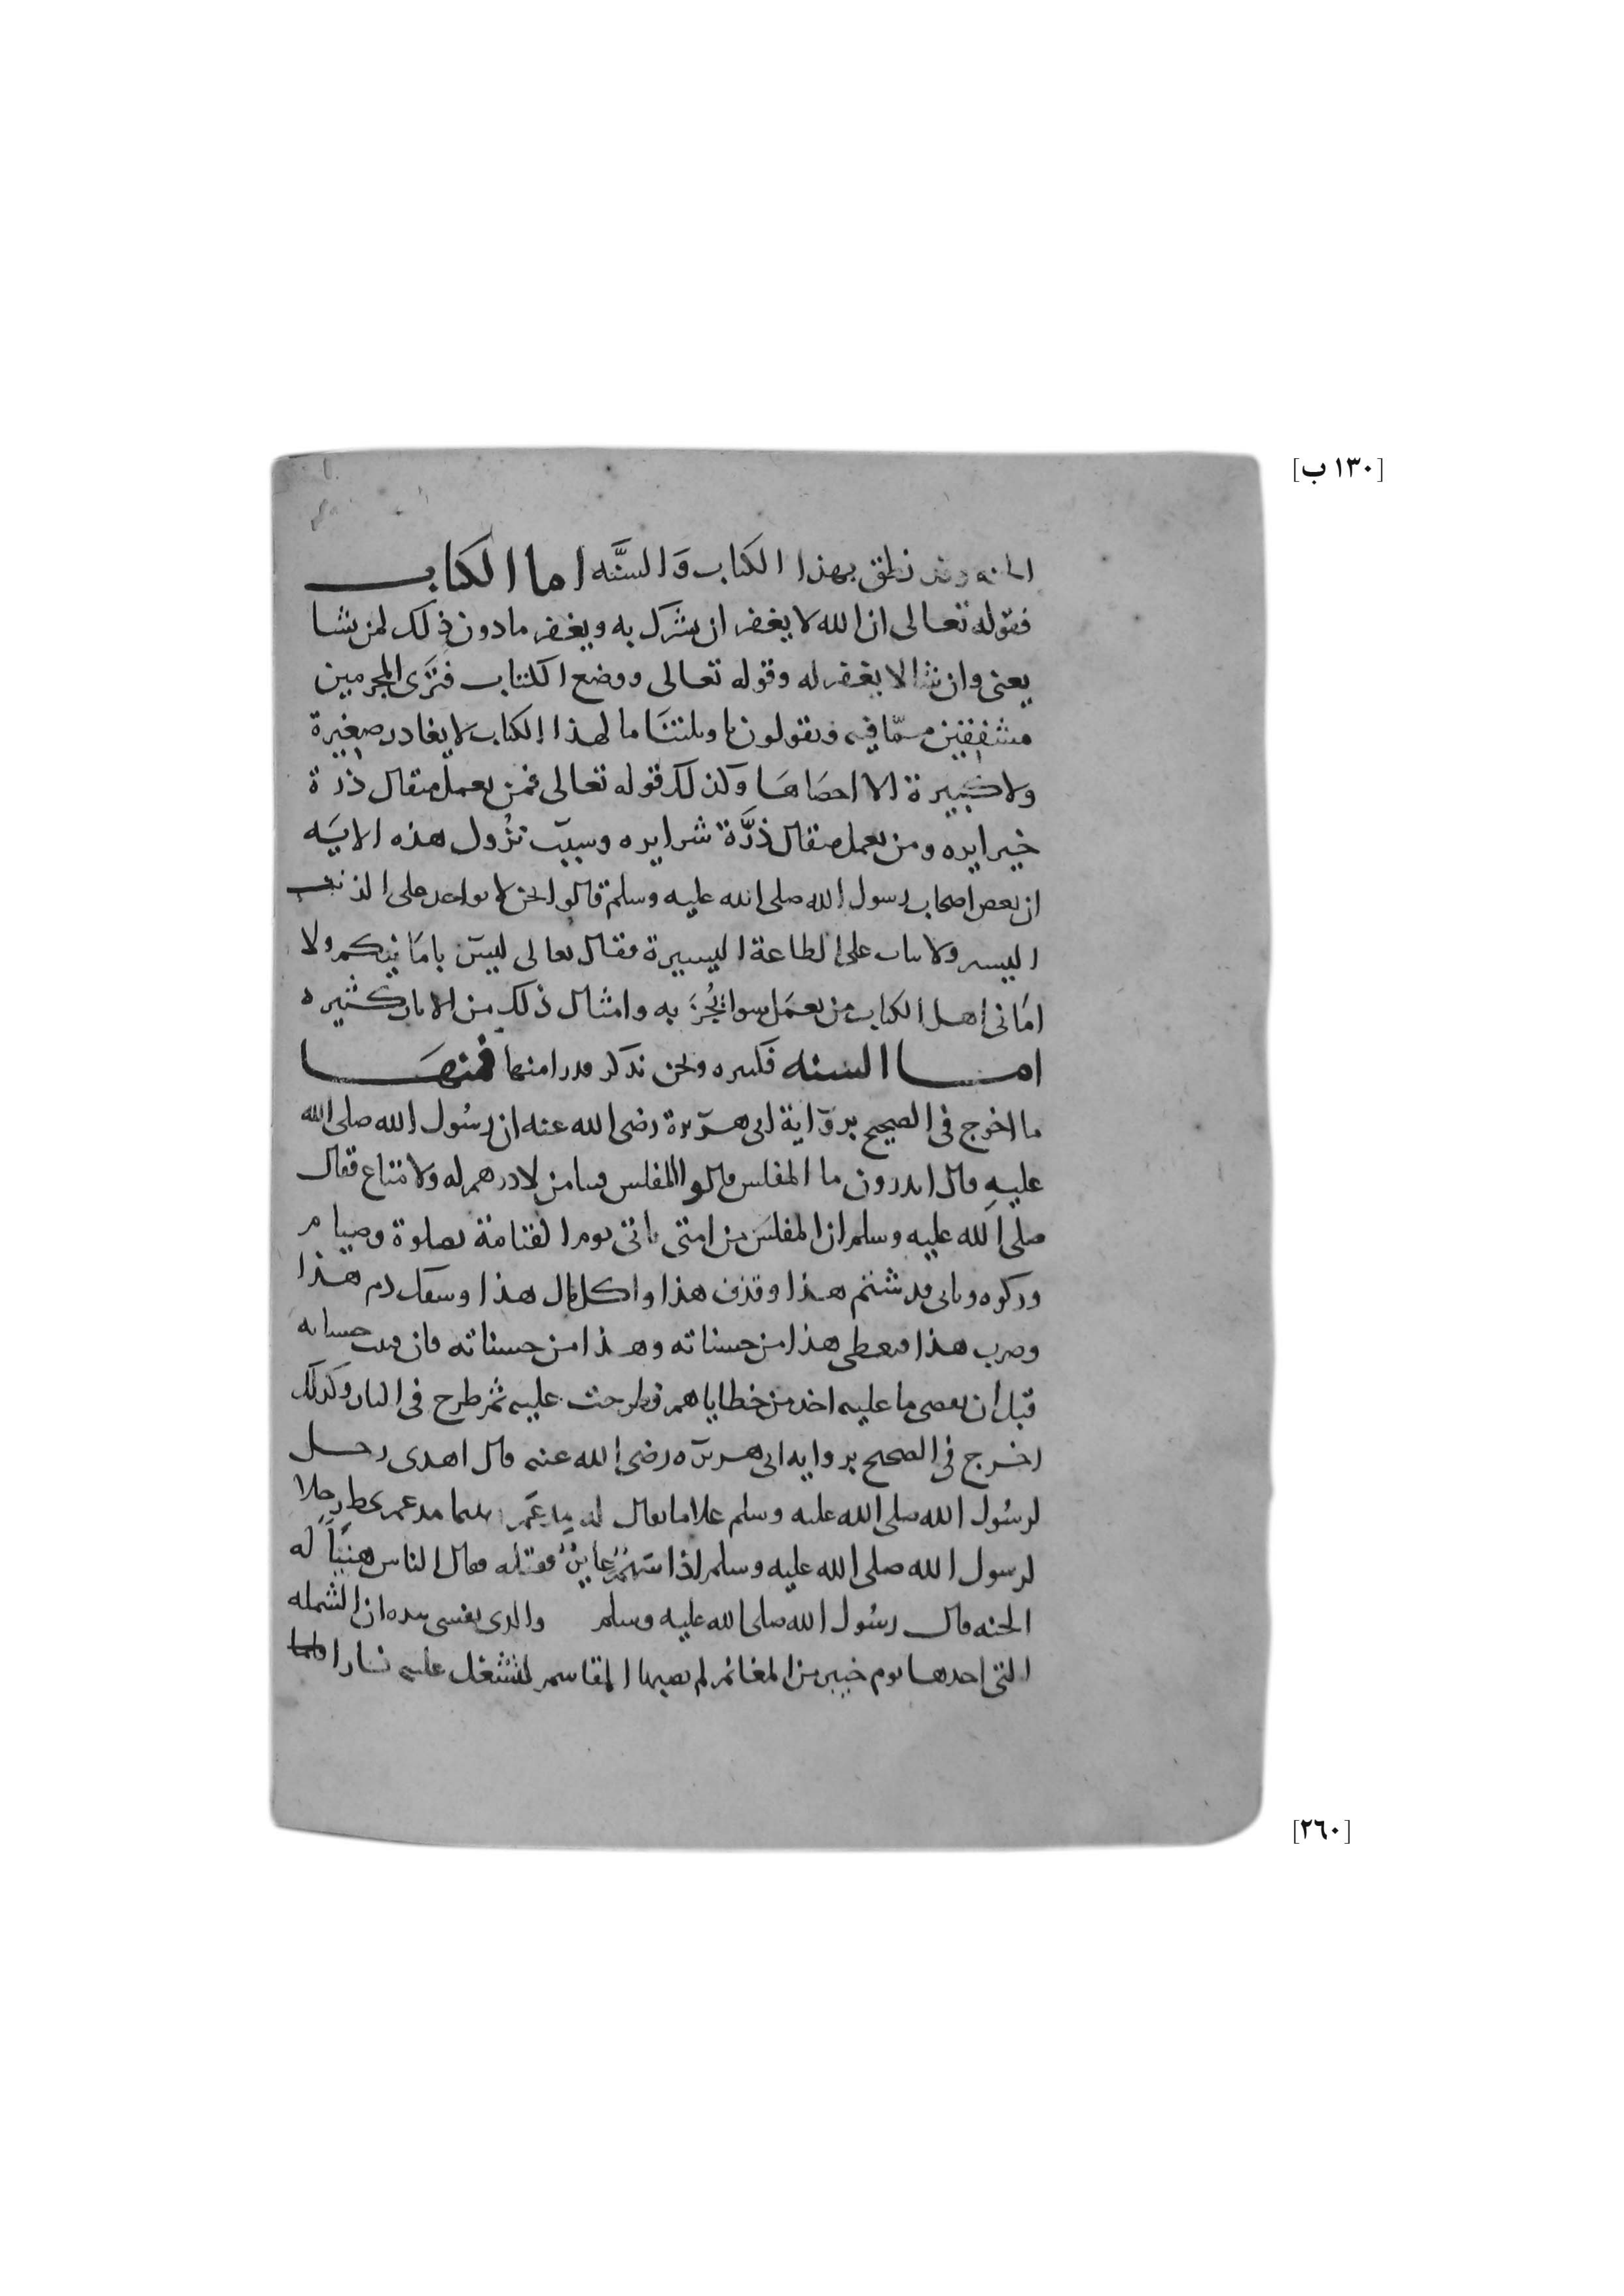 [١٣٠ ب]
الجنه وقد نطق بهذا الكتاب وَالسنَّه اما الكتاب
فقوله تعالى ان الله لا يغفر ان يشرك به ويغفر ما دون ذلك لمن يشا
يعنى وان شا لا يغفر له وقوله تعالى ووضع الكتاب فترَى المجرمين
مشفقين ممّا فيه ويقولون يا ويلتنَا ما لهذا الكتاب لا يغادر صغيرة
ولا كبيرة الا احصَاهَا وكذلك قوله تعالى فمن يعمل مثقال ذرة
خيرا يره ومن يعمل مثقال ذرَّة شرا يره وسبب نزُول هذه الايَه
ان بعض اصحاب رسول الله صلى الله عليه وسلم قالوا نحن لا نواخد على الذنب
اليسير ولا نثاب على الطاعة اليسيرة فقال تعالى ليسَ بامَانيكم ولا
امَانى اهل الكتاب من يعمَل سوا يُجزَ به وامثال ذلك من الايات كثيره
امـا السنه فكثيره ونحن نذكر قدرا منها فمنهَـا
ما اخرج فى الصحيح بروَاية ابى هرَيرة رضى الله عنه ان رسُول الله صلى الله
عليهِ قال اتدرون ما المفلس قالوا المفلس فينا من لا درهم له ولا متاع فقال
صلى الله عليه وسلم ان المفلسَ من امتى ياتى يوم القيامة بصلوة وصيام
وزكوه وياتى قد شتم هذا وقذف هذا واكل مال هذا وسفك دم هذا
وضرب هذا فيعطى هذا من حسناته وهذا من حسناته فان فنيت حسناته
قبل ان يقضى ما عليه اخذ من خطاياهم فطرحت عليه ثم طرح فى النار وكذلك
اخرج فى الصحيح بروايه ابى هريرَه رضى الله عنه قال اهدى رجل
لرسُول الله صلى الله عليه وسلم غلاما يقال له مِدعَم بينما مدعم يحط رحلا
لرسول الله صلى الله عليه وسلم اذا سَهمٌ عايرٌ فقتله فقال الناس هنيئاً له
الجنه فقال رسُول الله صلى الله عليه وسلم والذى نفسى بيده ان الشمله
التى اخذها يوم خيبر من المغانم لم يصبها المقاسم لتشتعل عليه نارا فلما
[٢٦٠]